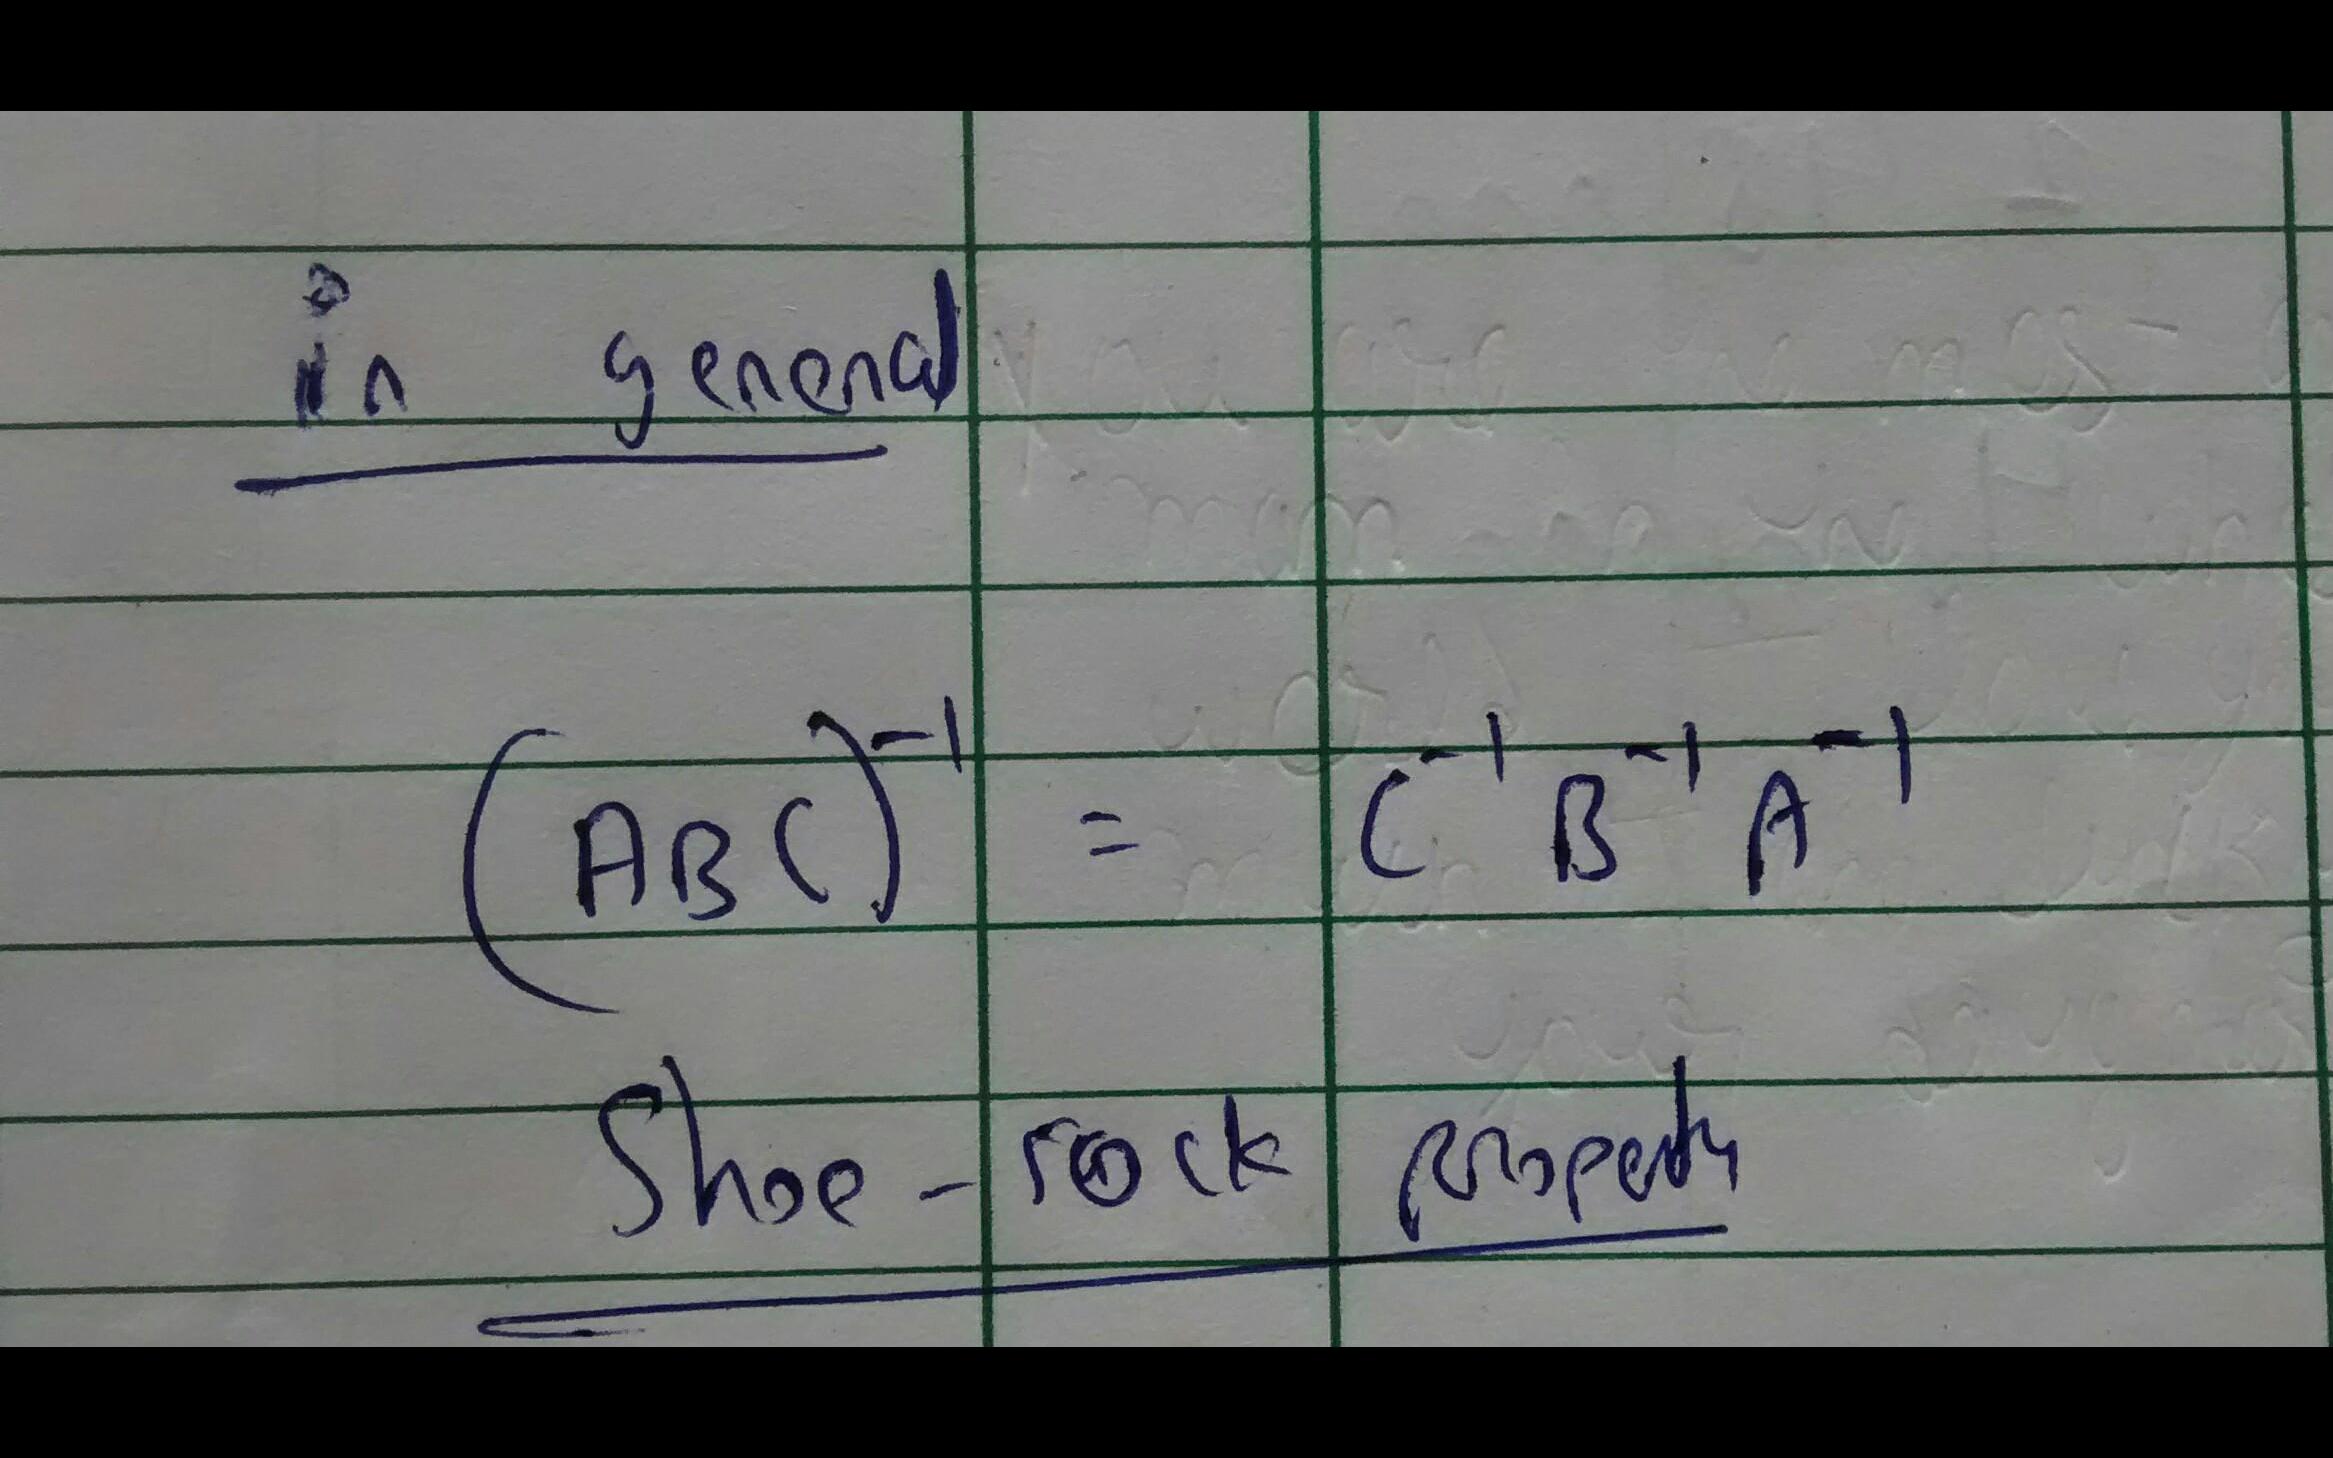 in general
(ABC)⁻¹ = C⁻¹ B⁻¹ A⁻¹
Shoe - rock property